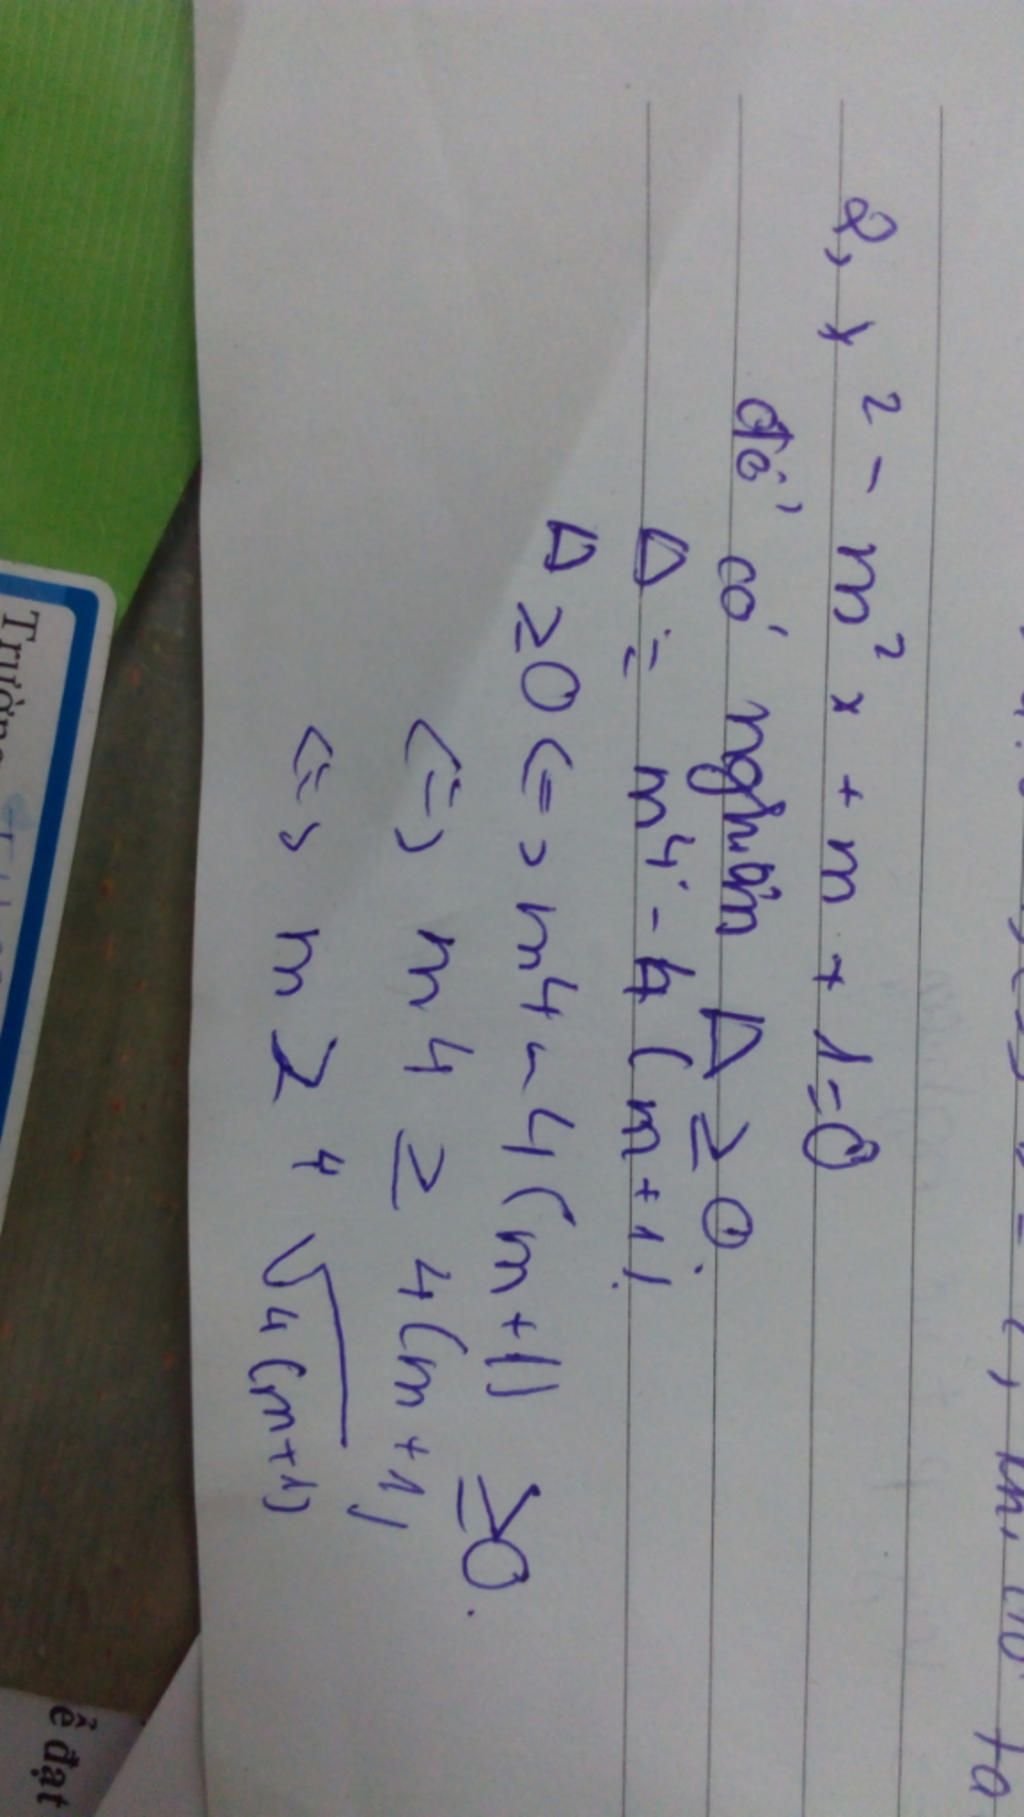 2, x² - m²x + m + 1 = 0
để có nghiệm Δ ≥ 0.
Δ = m⁴ - 4(m+1)
Δ ≥ 0 <=> m⁴ - 4(m+1) ≥ 0.
<=> m⁴ ≥ 4(m+1)
<=> m ≥ ⁴√4(m+1)
Trường
ể đạt